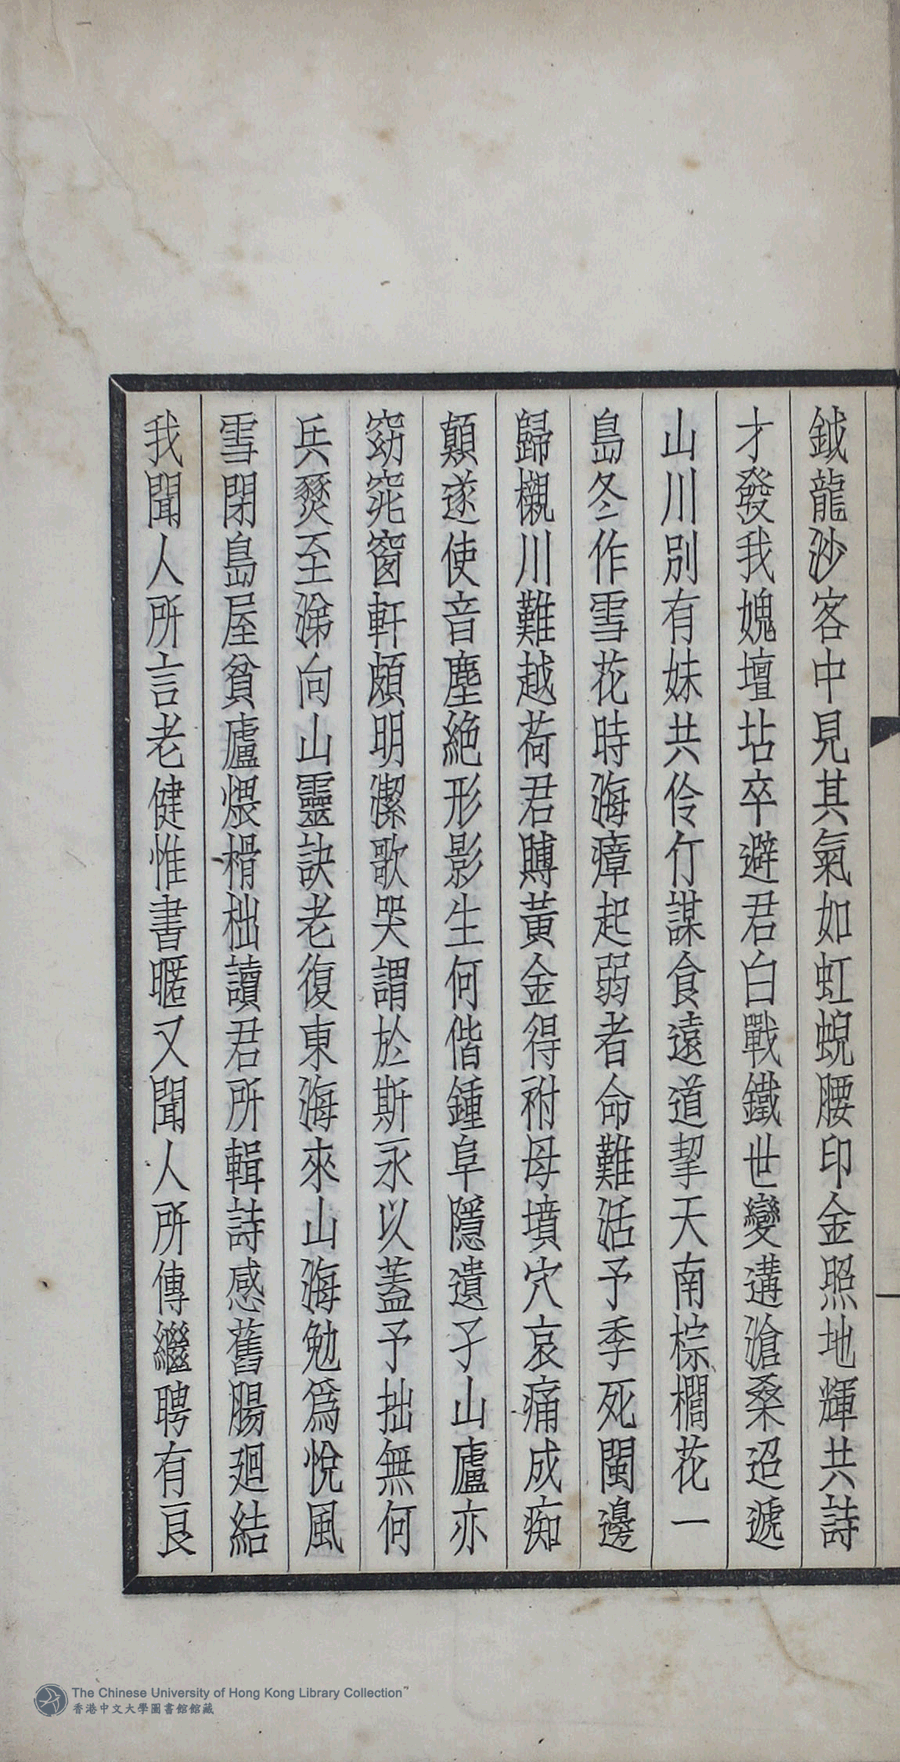 鉞龍沙客中見其氣如虹蜺腰印金照地輝共詩
才發我媿壇坫卒避君白戰鐵世變遘滄桑迢遞
山川別有妹共伶仃謀食遠道挈天南棕櫚花一
島冬作雪花時海瘴起弱者命難活予季死閩邊
歸櫬川難越荷君賻黃金得祔母墳穴哀痛成痴
顛遂使音塵絶形影生何偕鍾阜隱遺孑山廬亦
窈窕窗軒頗明潔歌哭謂於斯永以蓋予拙無何
兵燹至涕向山靈訣老復東海來山海勉爲悅風
雪閉島屋貧廬煨榾柮讀君所輯詩感舊腸廻結
我聞人所言老健惟書暱又聞人所傳繼聘有良
The Chinese University of Hong Kong Library Collection
香港中文大學圖書館館藏